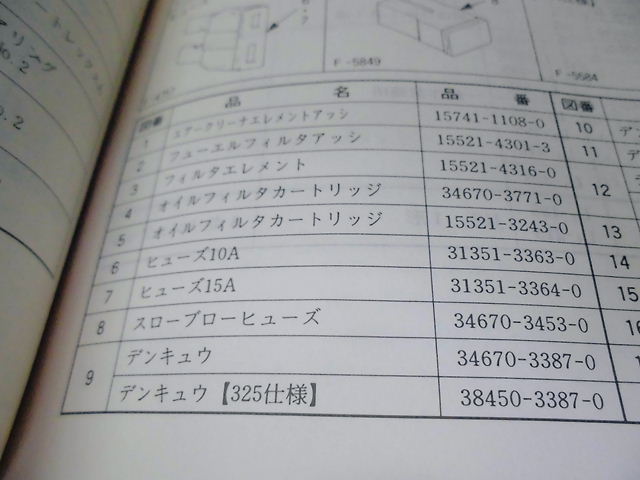 アリング
No.2
ートレックス
o.2
6・7
8
仕様】
F-5849
F-5684
図番 品 名 品 番 図番
1 エアークリーナエレメントアッシ 15741-1108-0 10
2 フューエルフィルタアッシ 15521-4301-3 11
3 フィルタエレメント 15521-4316-0 12
4 オイルフィルタカートリッジ 34670-3771-0
5 オイルフィルタカートリッジ 15521-3243-0 13
6 ヒューズ10A 31351-3363-0 14
7 ヒューズ15A 31351-3364-0 15
8 スローブローヒューズ 34670-3453-0
9 デンキュウ 34670-3387-0
デンキュウ【325仕様】 38450-3387-0